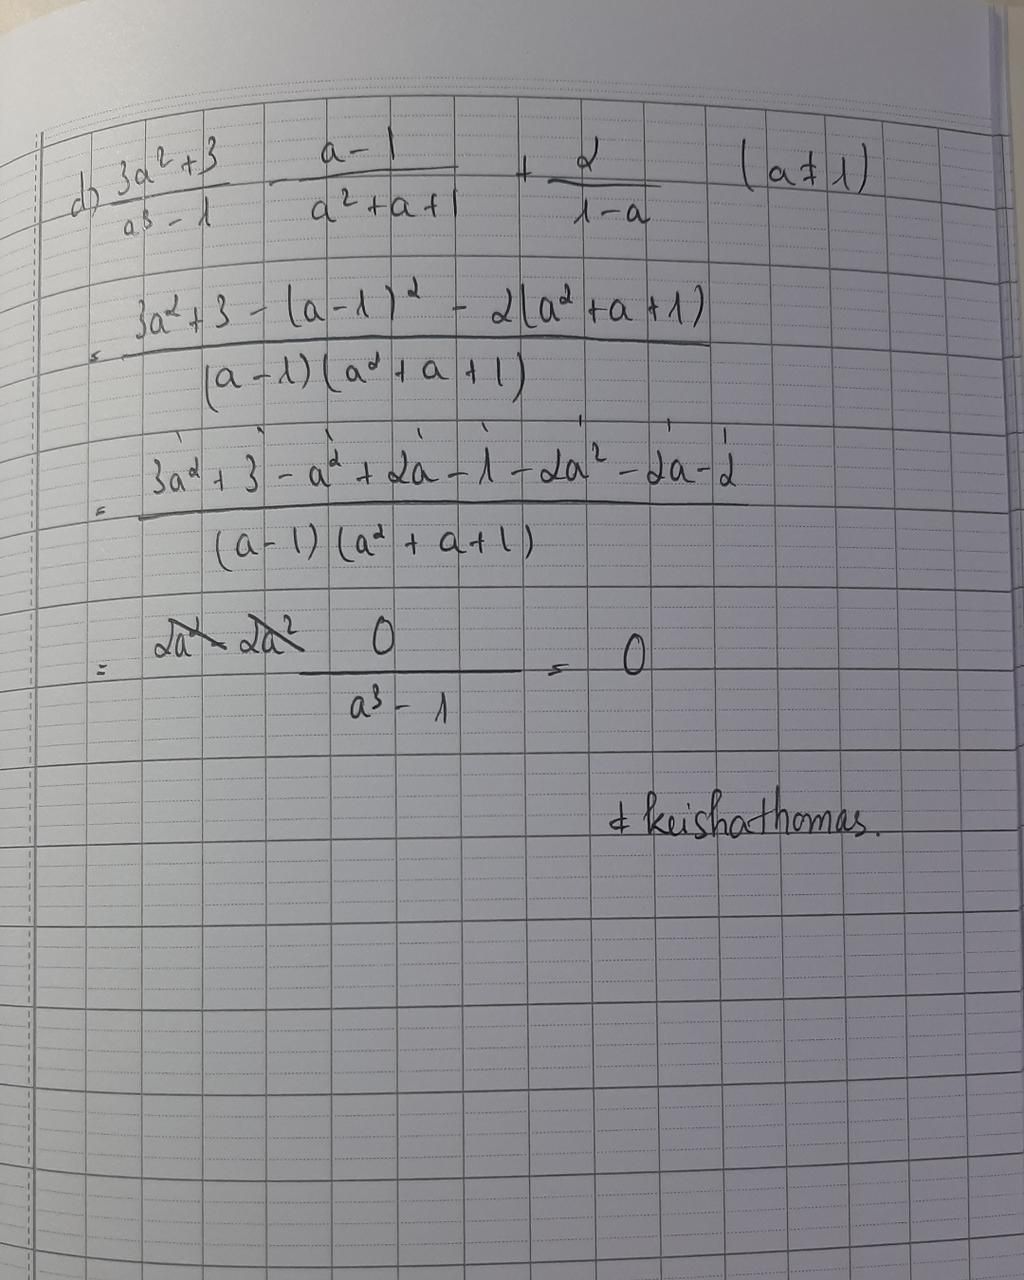 d) (3a² + 3)/(a³ - 1) - (a - 1)/(a² + a + 1) + 2/(1 - a) (a ≠ 1)
= (3a² + 3 - (a - 1)² - 2(a² + a + 1))/((a - 1)(a² + a + 1))
= (3a² + 3 - a² + 2a - 1 - 2a² - 2a - 2)/((a - 1)(a² + a + 1))
= 0/(a³ - 1) = 0
# keishathomas.